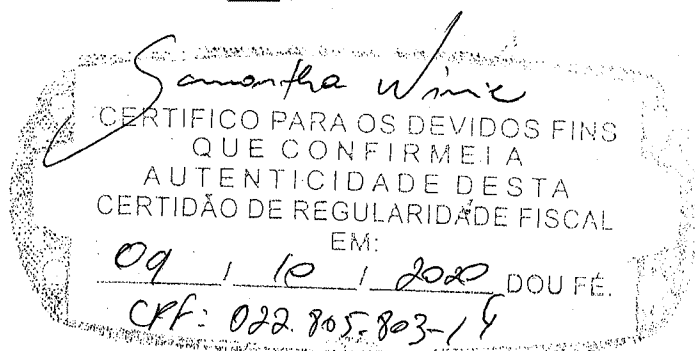 Samantha
CERTIFICO PARA OS DEVIDOS FINS
QUE CONFIRMEI A
AUTENTICIDADE DESTA
CERTIDÃO DE REGULARIDADE FISCAL
EM:
09 / 10 / 2020 DOU FÉ.
CPF: 022.805.803-14